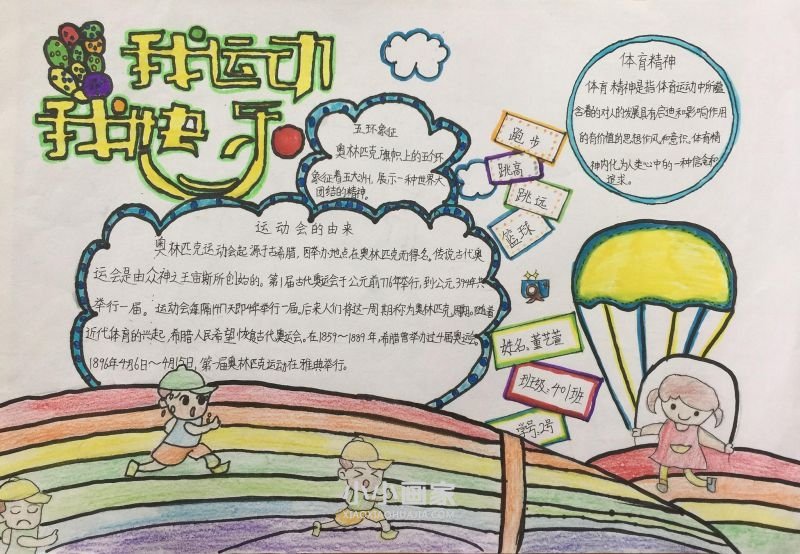 我运动
我快乐
五环象征
奥林匹克旗帜上的五个环
象征着五大洲，展示一种世界大
团结的精神。
体育精神
体育精神是指体育运动中所蕴
含着的对人的发展具有启迪和影响作用
的有价值的思想作风和意识。体育精
神内化为人类心中的一种信念和
追求。
跑步
跳高
跳远
篮球
运动会的由来
奥林匹克运动会起源于古希腊，因举办地点在奥林匹克而得名。传说古代奥
运会是由众神之王宙斯所创始的。第1届古代奥运会于公元前776年举行，到公元394年共
举行一届。运动会每隔1417天即4年举行一届，后来人们将这一周期称为奥林匹克周期。随着
近代体育的兴起，希腊人民希望恢复古代奥运会。在1859～1889年，希腊曾举办过4届奥运会。
1896年4月6日～4月15日，第一届奥林匹克运动在雅典举行。
姓名：董艺萱
班级：401班
学号：2号
小小画家
XIAOXIAOHUAJIA.COM